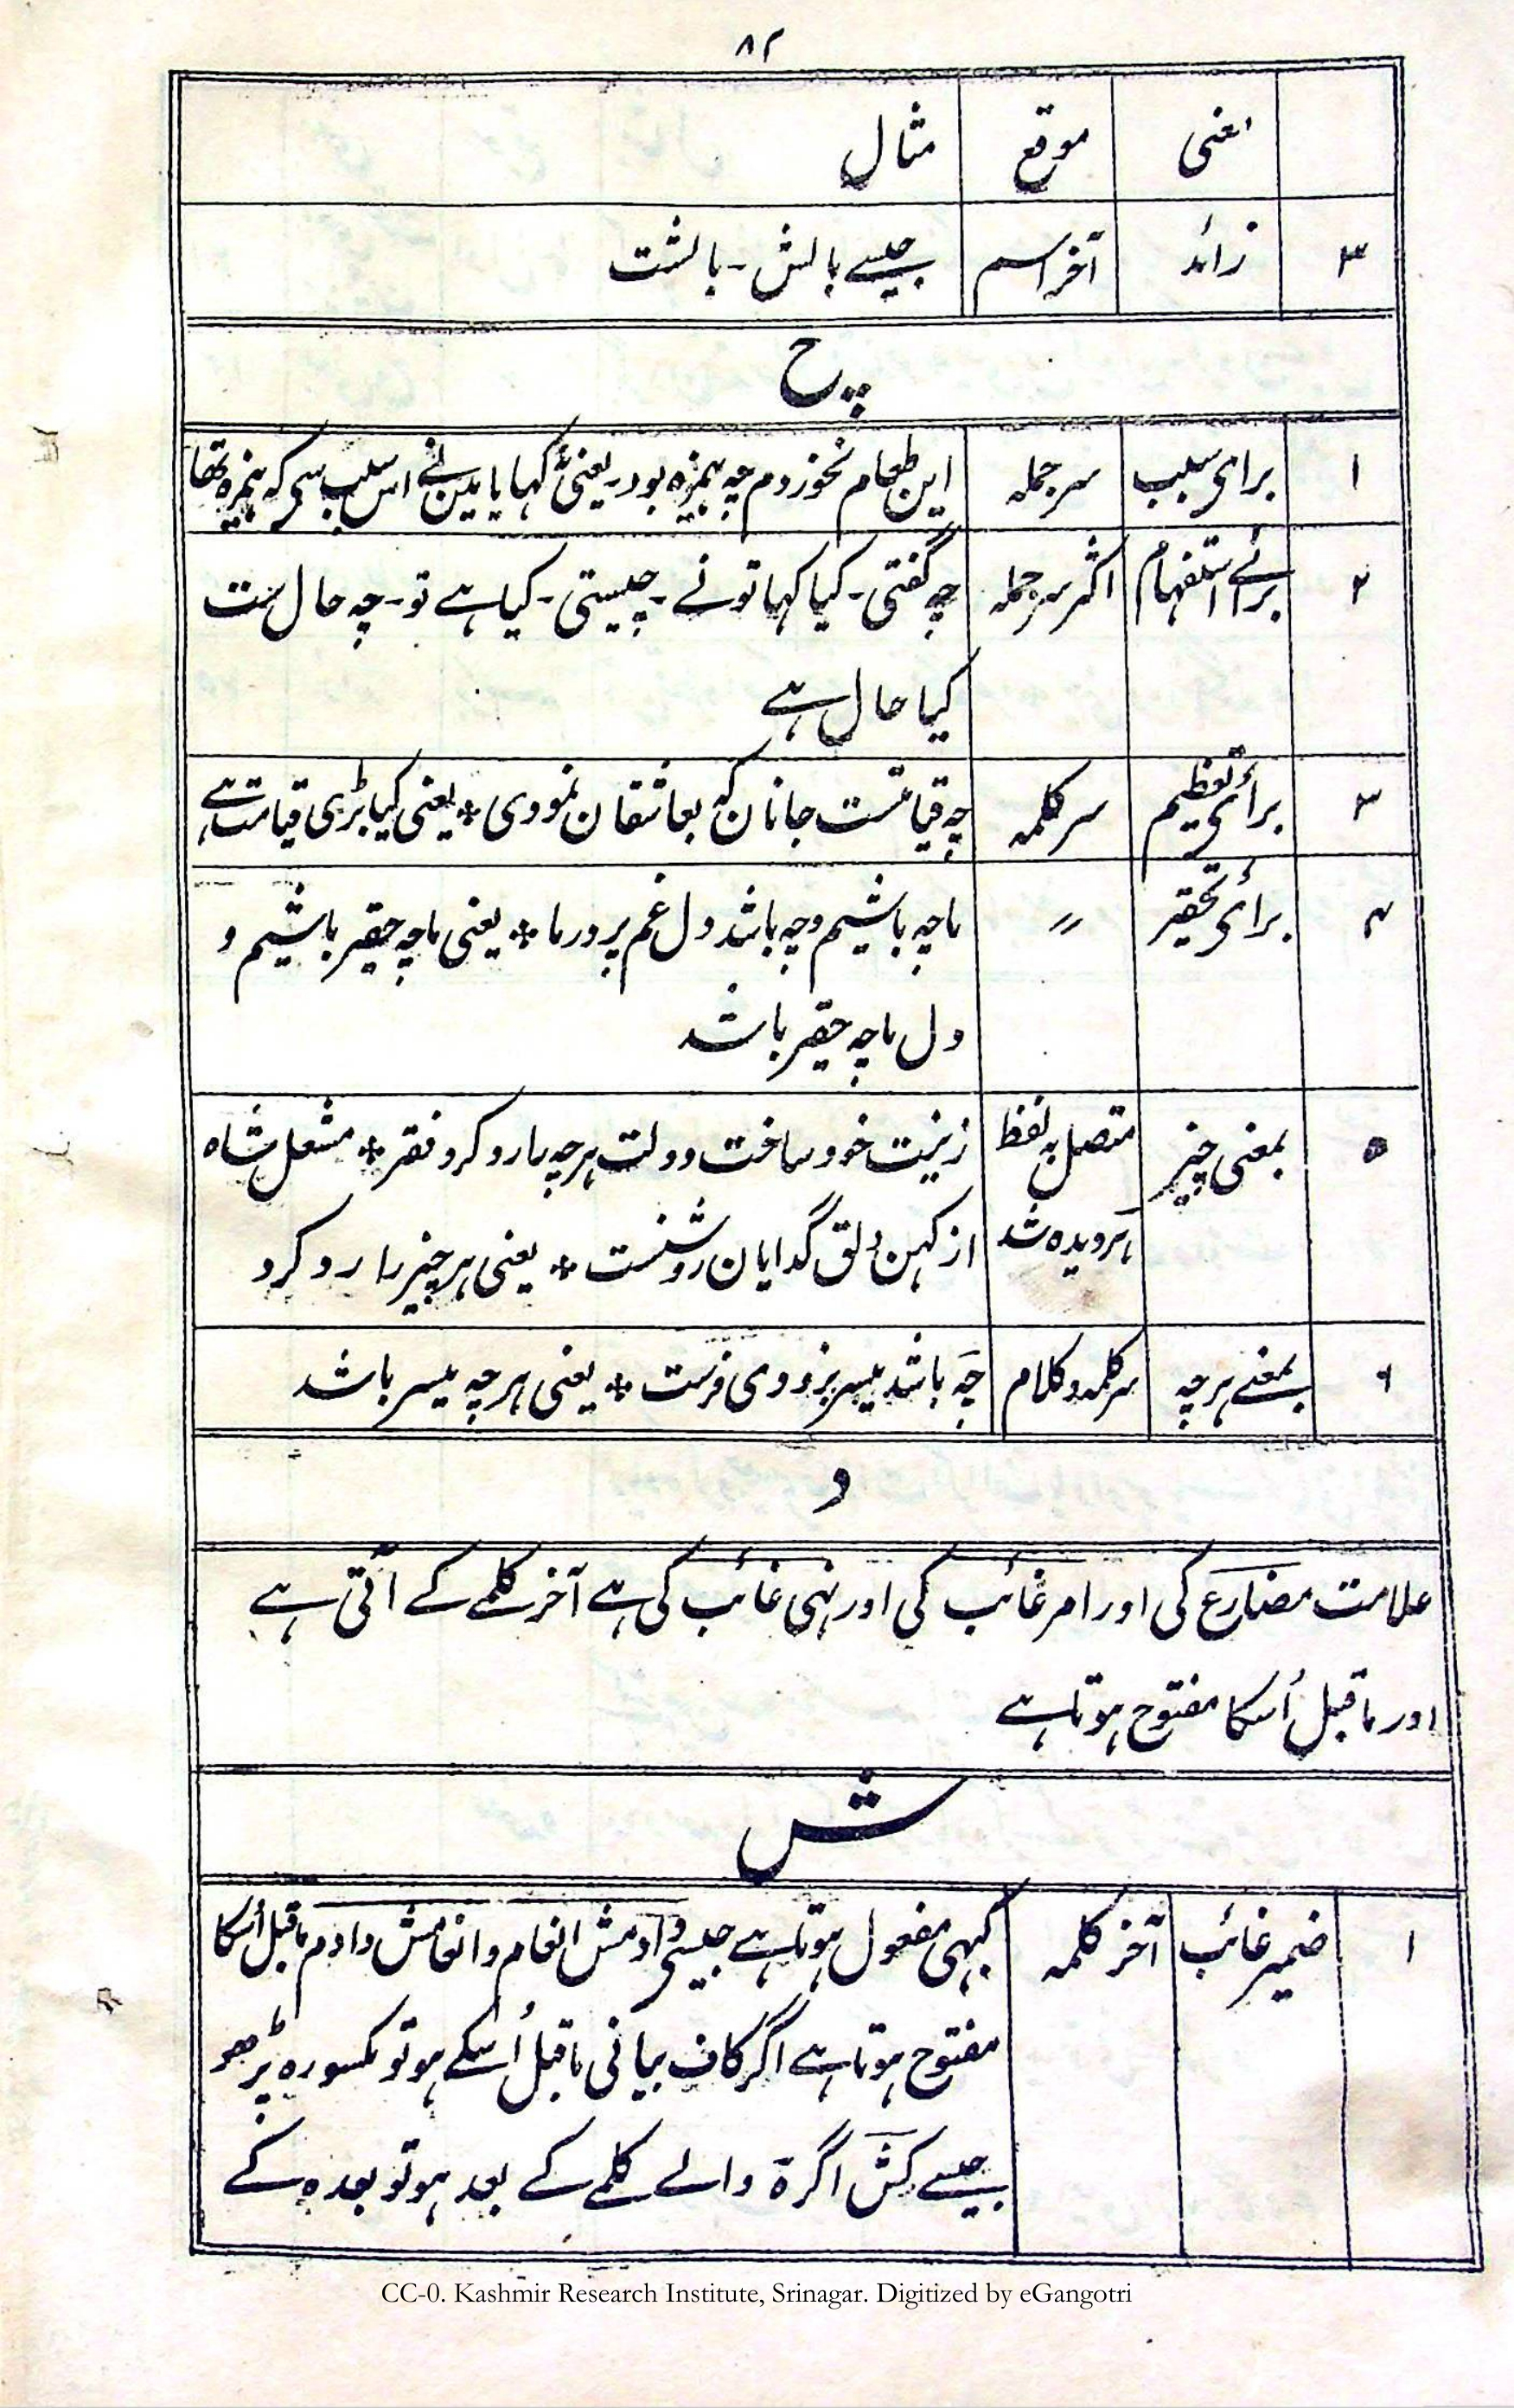 ۸۲
معنی موقع مثال
۳ زائد آخر اسم جیسے بالش - بالشت
چ
۱ برای سبب سر جمله این طعام نخوردم چه بیمزه بود - یعنی نہ کہایا مین نے اس سبب سی کہ بیمزہ تھا
۲ برائے استفہام اکثر سر جملہ چہ گفتی - کیا کہا تو نے - چیستی - کیا ہے تو - چہ حال ست
کیا حال ہے
۳ برائی تعظیم سر کلمہ چہ قیامتست جانان کہ بعاشقان نمودی * یعنی کیا بڑی قیامت ہے
۴ برائی تحقیر 〃 ماچہ باشیم وچہ باشد دل غم پرور ما * یعنی ماچہ حقیر باشیم و
دل ماچہ حقیر باشد
۵ بمعنی چیز متصل بہ لفظ زینت خود ساخت دولت ہرچہ مارد کرد فقر * مشعل شاہ
ہر دیدہ شد از کہن دلق گدایان روشنست * یعنی ہر چیز را رد کرد
۶ بمعنے ہرچہ سر کلمہ و کلام چہ باشد میسر بزودی فرست * یعنی ہرچہ میسر باشد
د
علامت مضارع کی اور امر غائب کی اور نہی غائب کی ہے آخر کلمے کے آتی ہے
اور ماقبل اُسکا مفتوح ہوتا ہے
ش
۱ ضمیر غائب آخر کلمہ کبہی مفعول ہوتا ہے جیسی دادمش انعام و انعامش دادم ماقبل اُسکا
مفتوح ہوتا ہے اگر کاف بیانی ماقبل اُسکے ہو تو مکسورہ پڑھو
جیسے کش اگر ہ والے کلمے کے بعد ہو تو بعد ہ کے
CC-0. Kashmir Research Institute, Srinagar. Digitized by eGangotri